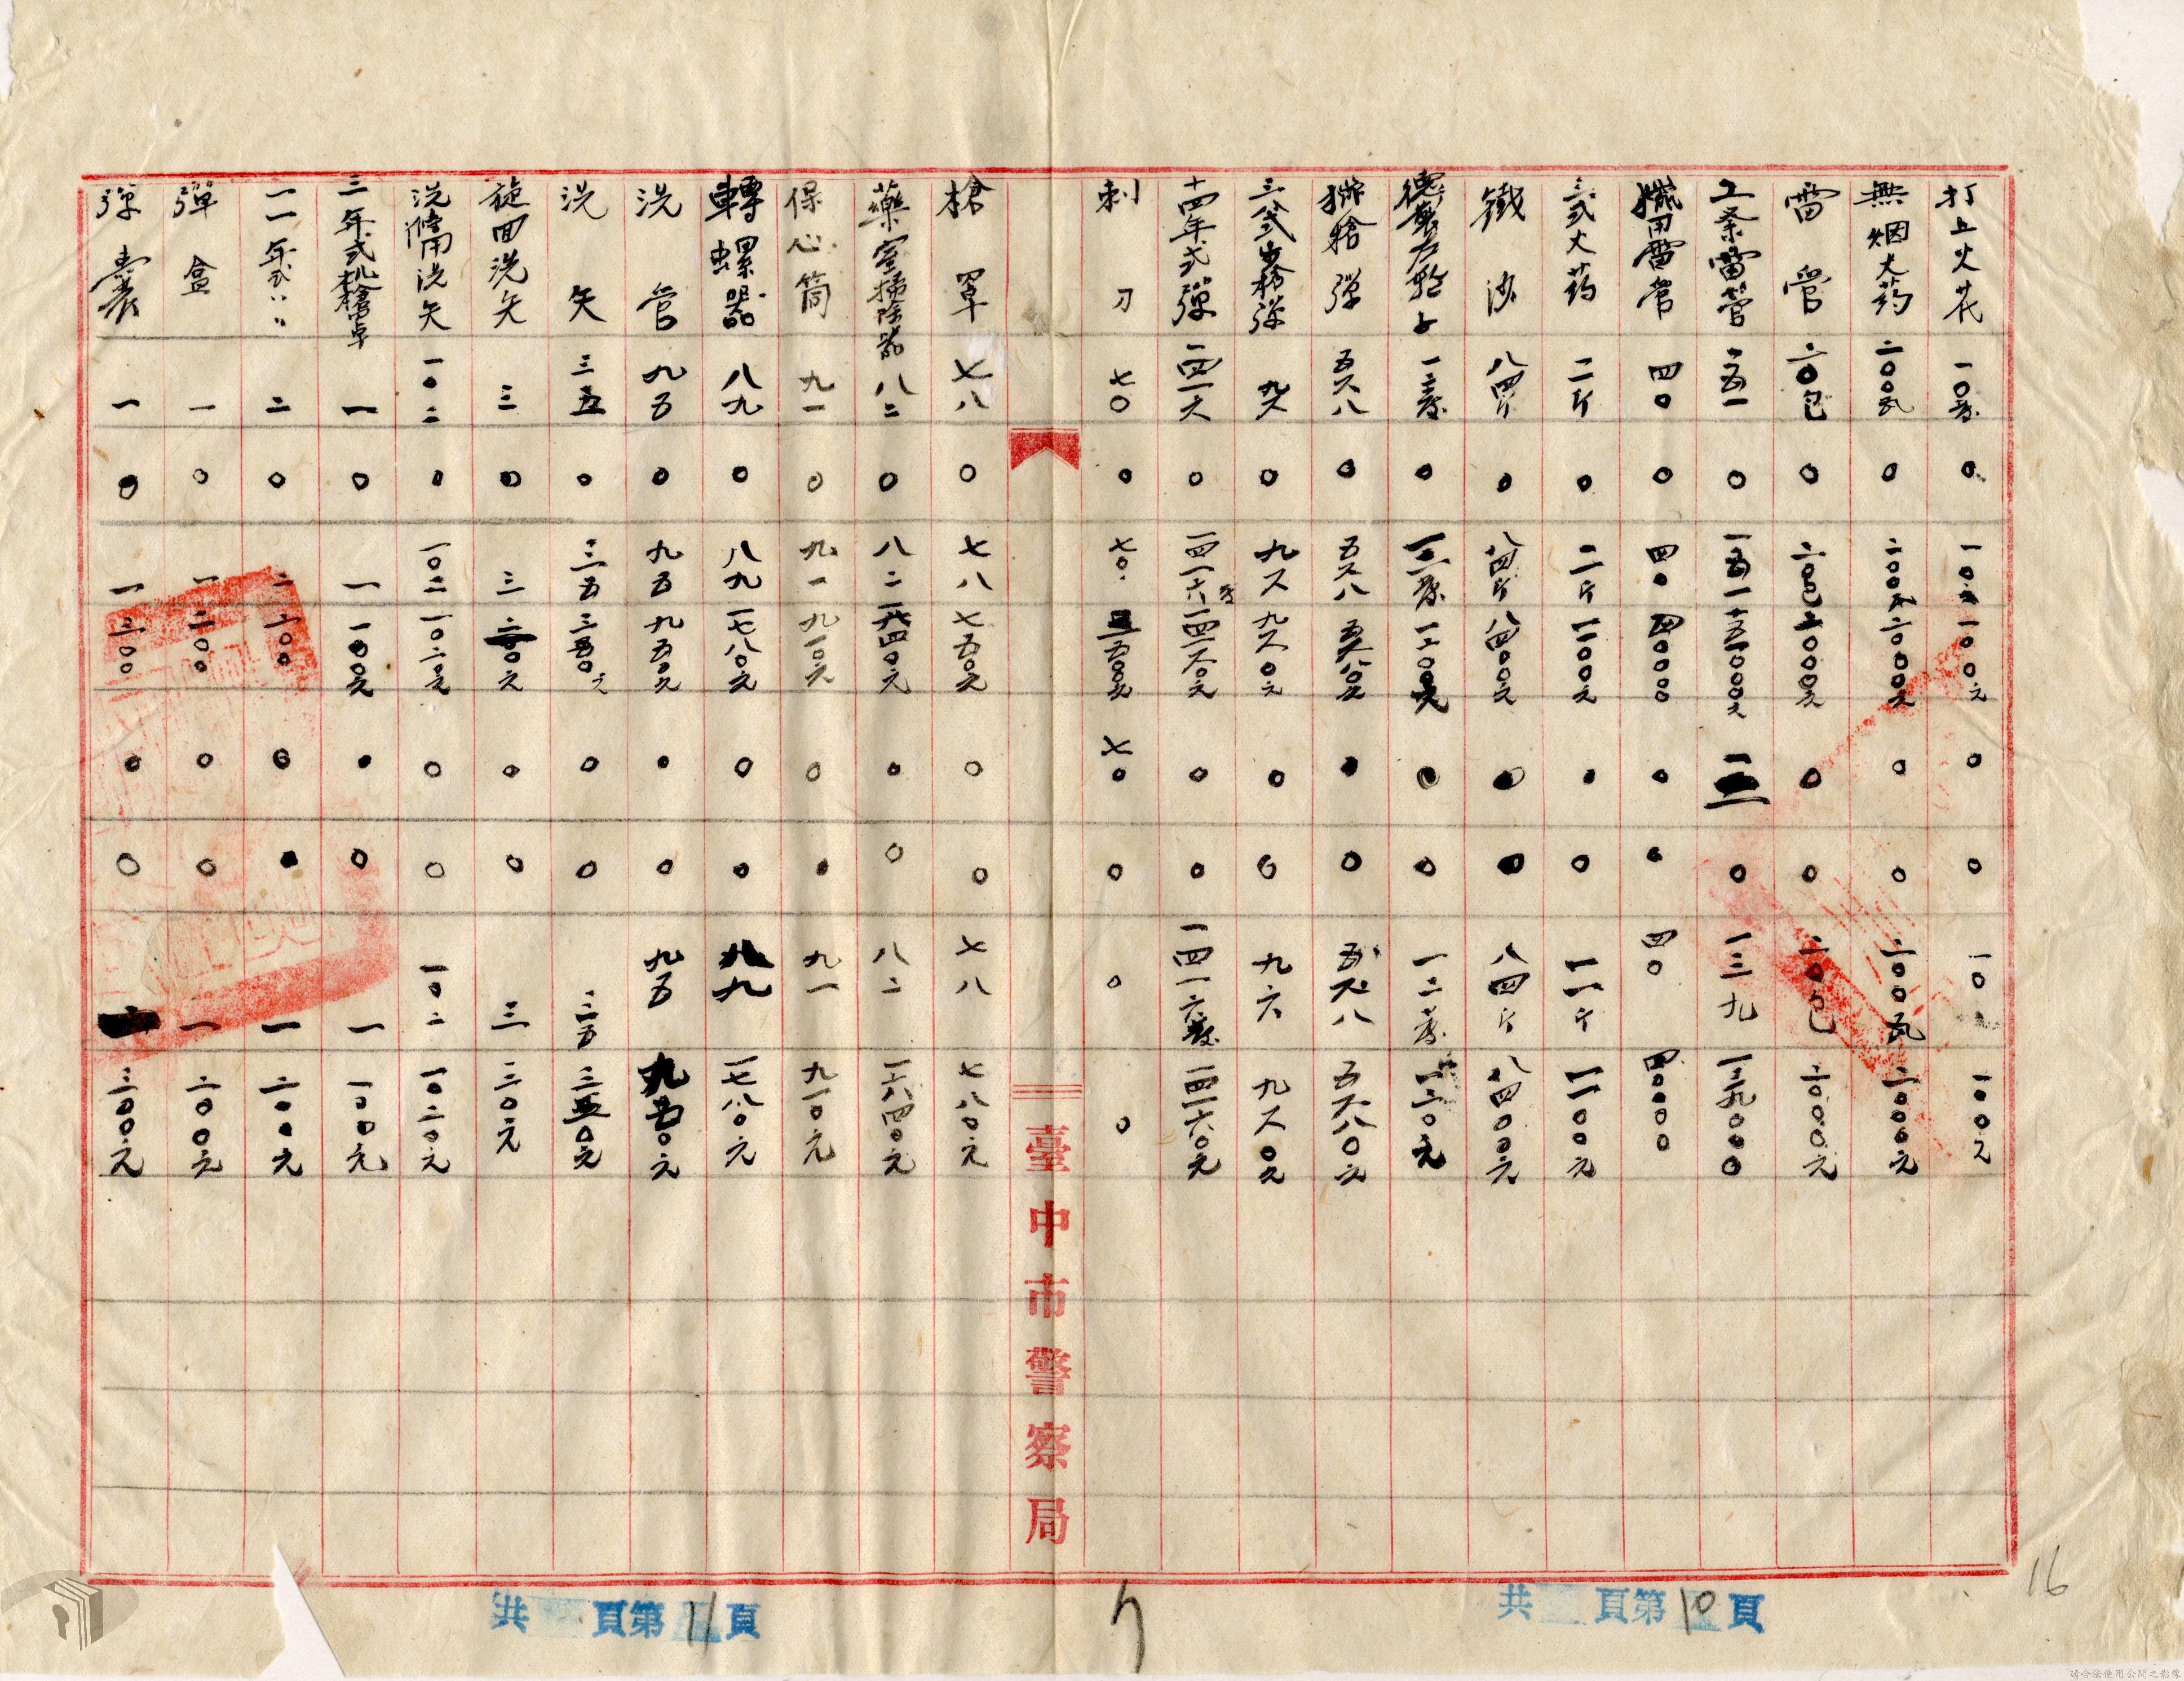 打上火花 一〇發 〇 一〇發 一〇〇元 〇 〇 一〇 一〇〇元
無烟火药 二〇〇瓦 〇 二〇〇瓦 二〇〇〇元 〇 〇 二〇〇瓦 二〇〇〇元
雷管 二〇包 〇 二〇包 二〇〇〇元 〇 〇 二〇包 二〇〇〇元
工業雷管 一五一 〇 一五一 一五一〇〇〇元 〇 一三九 一三九〇〇〇
用雷管 四〇 〇 四〇 四〇〇〇〇 〇 〇 四〇 四〇〇〇〇
式火药 二斤 〇 二斤 〇 〇 斤
鐵沙 八四斤 〇 八四斤 八四〇〇元 〇 〇 八四斤 八四〇〇元
德製 〇 〇 〇
槍彈 五六八 〇 五六八 五六八〇元 〇 〇 五六八 五六八〇元
三八式步槍彈 九六 〇 九六 九六〇元 〇 〇 九六 九六〇元
十四年式彈 一四一六 〇 一四一六發 一四一六〇元 〇 〇 一四一六發 一四一六〇元
刺刀 七〇 〇 七〇 三五〇〇元 七〇 〇 〇 〇
臺中市警察局
槍罩 七八 〇 七八 七五〇元 〇 〇 七八 七八〇元
藥室掃除器 八二 〇 八二 一六四〇元 〇 〇 八二 一六四〇元
保心筒 九一 〇 九一 九一〇元 〇 〇 九一 九一〇元
轉螺器 八九 〇 八九 一七八〇元 〇 〇 八九 一七八〇元
洗管 九五 〇 九五 九五〇元 〇 〇 九五 九五〇元
洗矢 三五 〇 三五 三五〇元 〇 〇 三五 三五〇元
旋回洗矢 三 〇 三 三〇元 〇 〇 三 三〇元
洗滌用洗矢 一〇二 〇 一〇二 一〇二〇元 〇 〇 一〇二 一〇二〇元
三年式机槍卓 一 〇 一 一〇〇元 〇 〇 一 一〇〇元
一一年式〃〃 二 〇 二 二〇〇 〇 〇 一 二〇〇元
彈盒 一 〇 一 二〇〇 〇 〇 一 二〇〇元
彈囊 一 〇 一 三〇〇 〇 〇 三〇〇元
共 頁第10頁
共 頁第11頁
16
請合法使用公開之影像